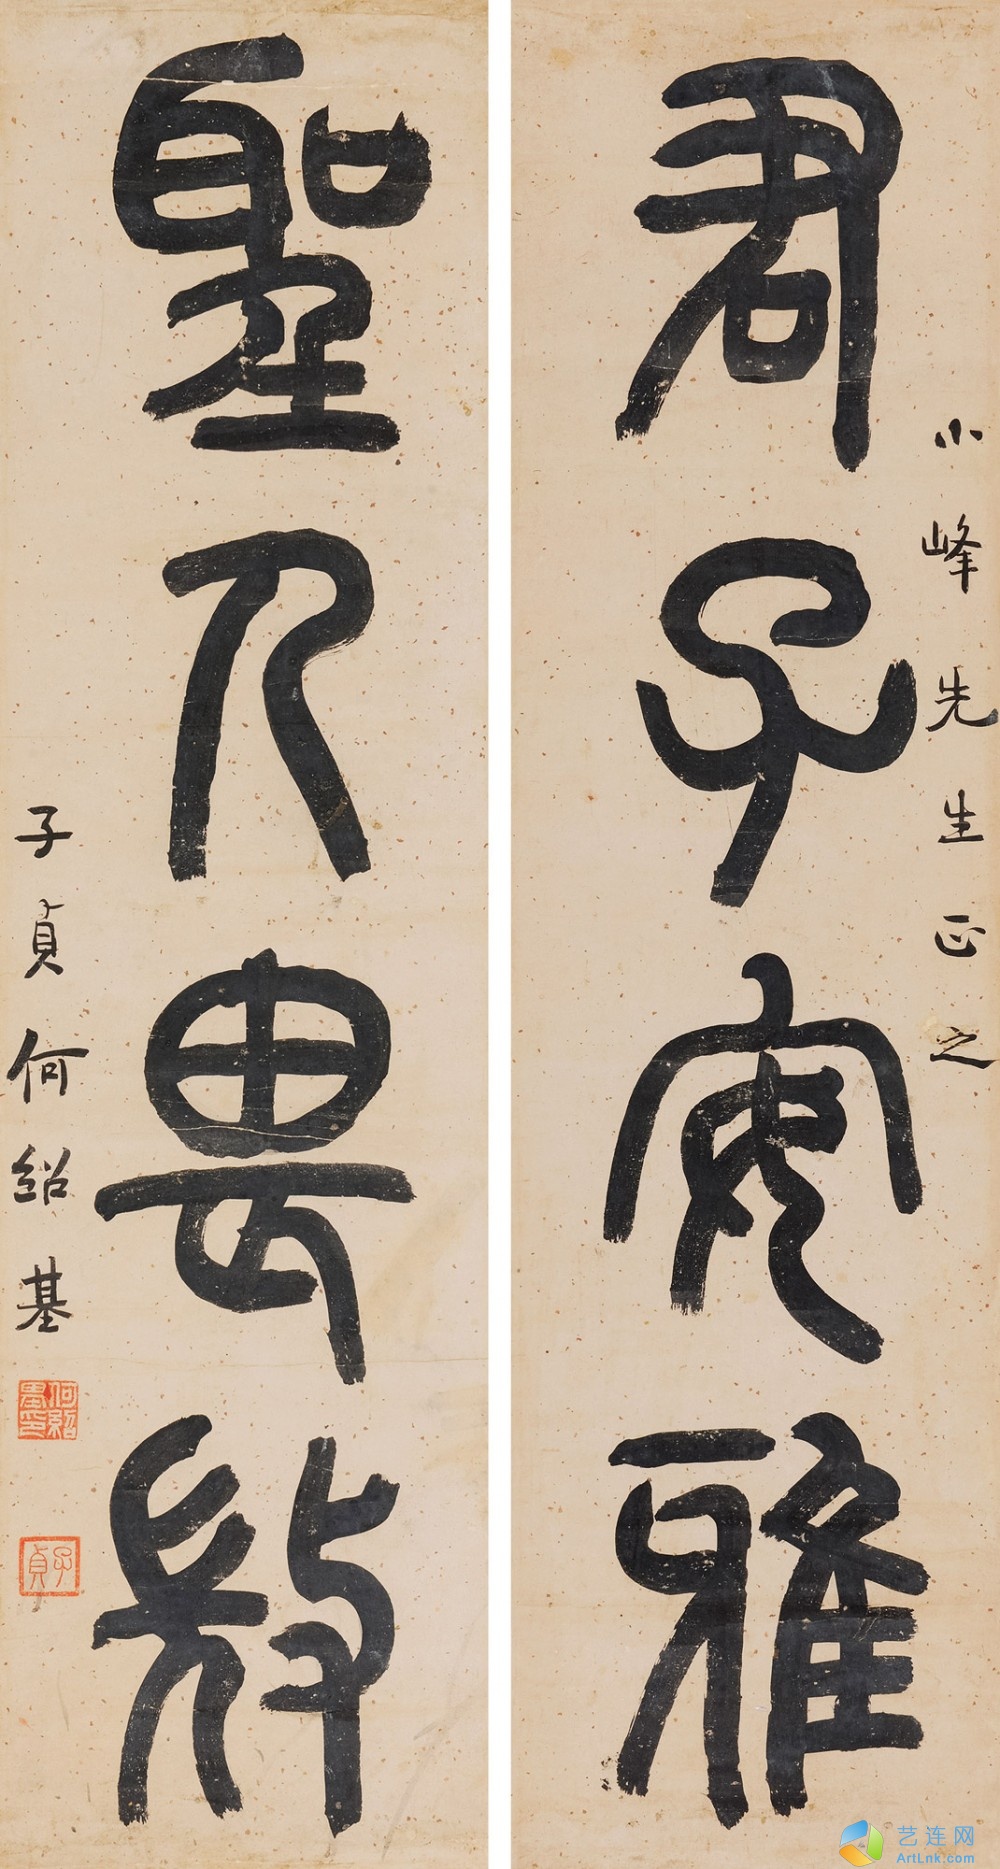 小峰先生正之
君子安雅
聖人畏微
子貞何紹基
何紹基印
子貞
艺连网
ArtLnk.com